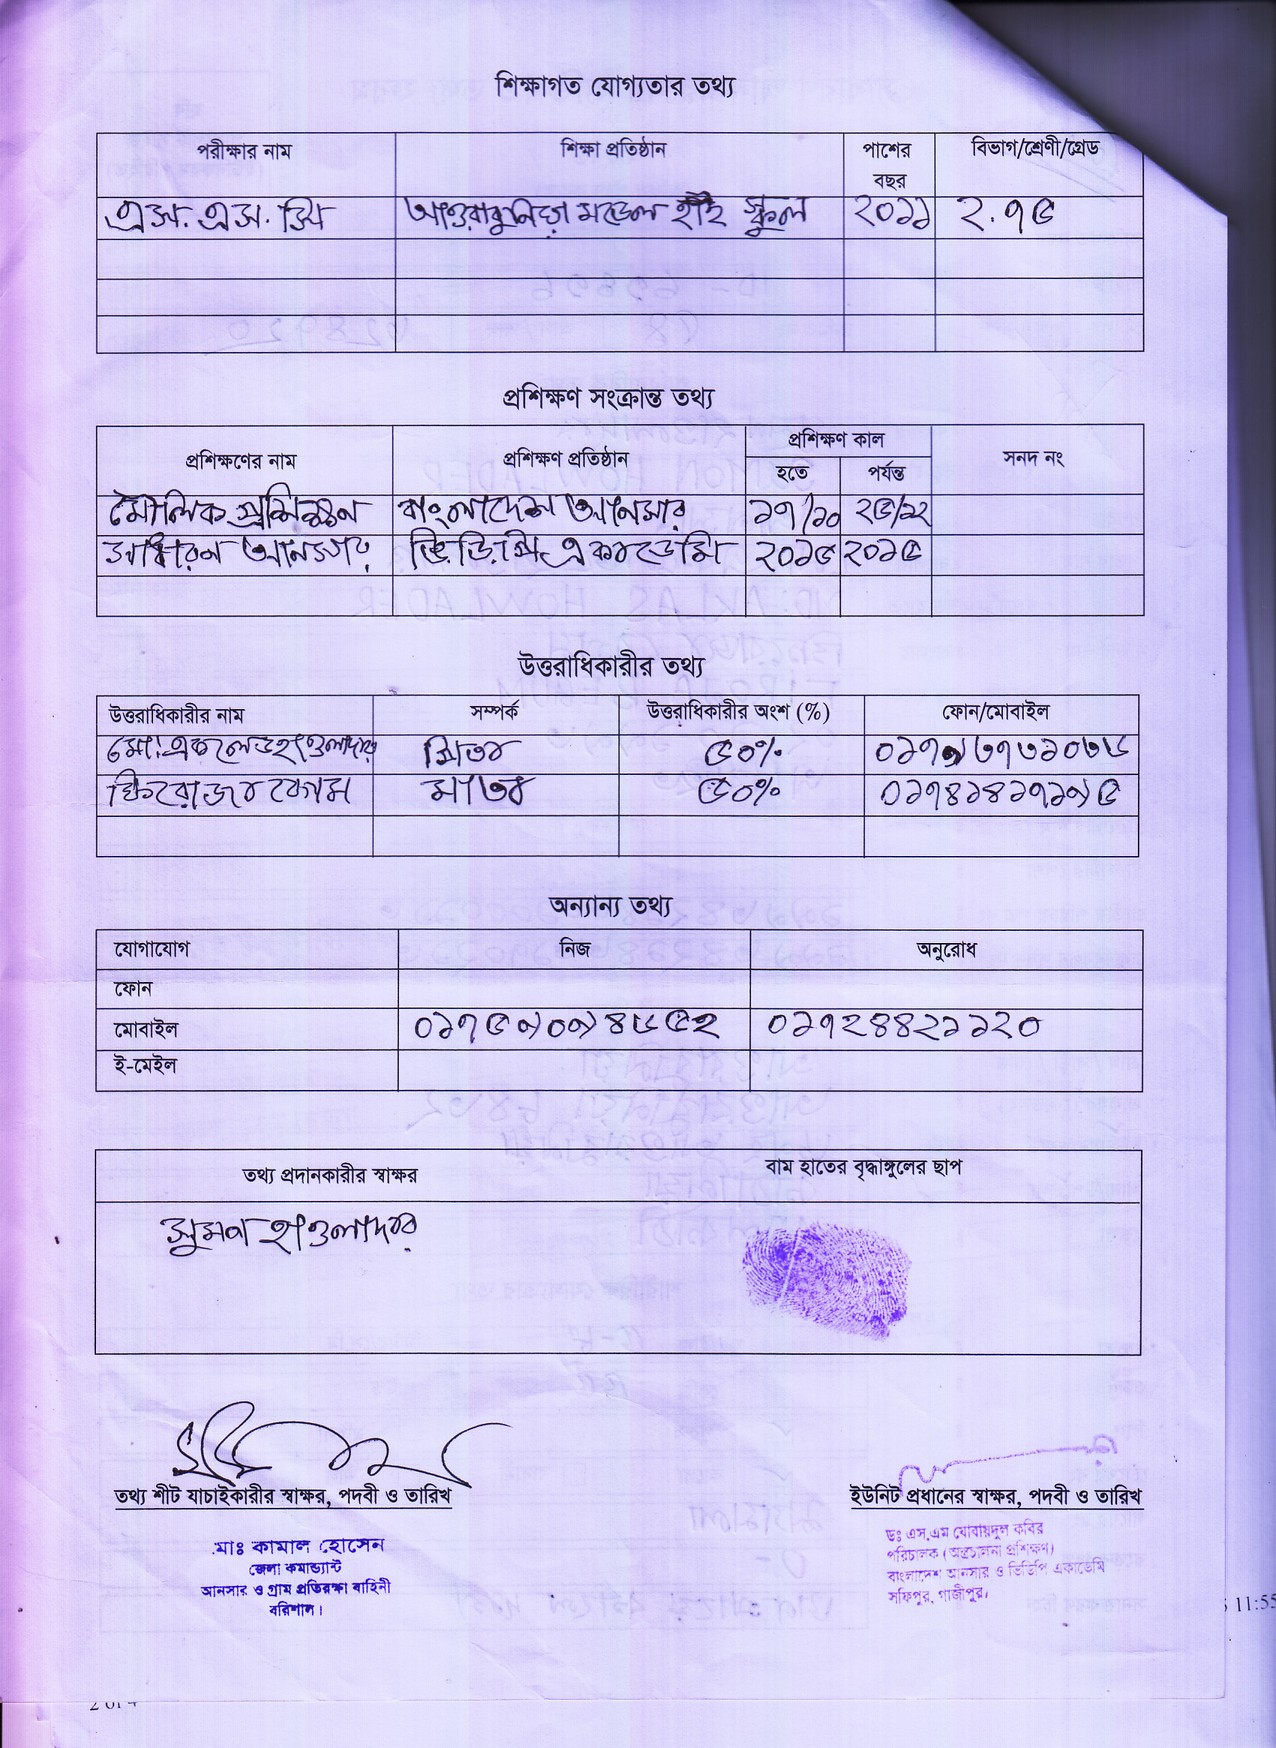 শিক্ষাগত যোগ্যতার তথ্য
পরীক্ষার নাম শিক্ষা প্রতিষ্ঠান পাশের বছর বিভাগ/শ্রেণী/গ্রেড
এস.এস.সি আওরাবুনিয়া মডেল হাই স্কুল ২০১১ ২.৭৫
প্রশিক্ষণ সংক্রান্ত তথ্য
প্রশিক্ষণের নাম প্রশিক্ষণ প্রতিষ্ঠান প্রশিক্ষণ কাল সনদ নং
হতে পর্যন্ত
মৌলিক প্রশিক্ষন বাংলাদেশ আনসার ১৭/১০ ২৫/১২
সাধারন আনসার ভি.ডি.পি একাডেমি ২০১৫ ২০১৫
উত্তরাধিকারীর তথ্য
উত্তরাধিকারীর নাম সম্পর্ক উত্তরাধিকারীর অংশ (%) ফোন/মোবাইল
মো: হাওলাদার পিতা ৫০%
ফিরোজা বেগম মাতা ৫০% ০১৭৪১৪১৭১৯৫
অন্যান্য তথ্য
যোগাযোগ নিজ অনুরোধ
ফোন
মোবাইল ০১৭৫৯০৯৪৬৫২ ০১৭২৪৪২১১২০
ই-মেইল
তথ্য প্রদানকারীর স্বাক্ষর বাম হাতের বৃদ্ধাঙ্গুলের ছাপ
সুমন হাওলাদার
তথ্য শীট যাচাইকারীর স্বাক্ষর, পদবী ও তারিখ ইউনিট প্রধানের স্বাক্ষর, পদবী ও তারিখ
মোঃ কামাল হোসেন
জেলা কমান্ড্যান্ট
আনসার ও গ্রাম প্রতিরক্ষা বাহিনী
বরিশাল।
ডঃ এস.এম যোবায়দুল কবির
পরিচালক (অস্ত্রচালনা প্রশিক্ষণ)
বাংলাদেশ আনসার ও ভিডিপি একাডেমি
সফিপুর, গাজীপুর।
11:55
2 of 4